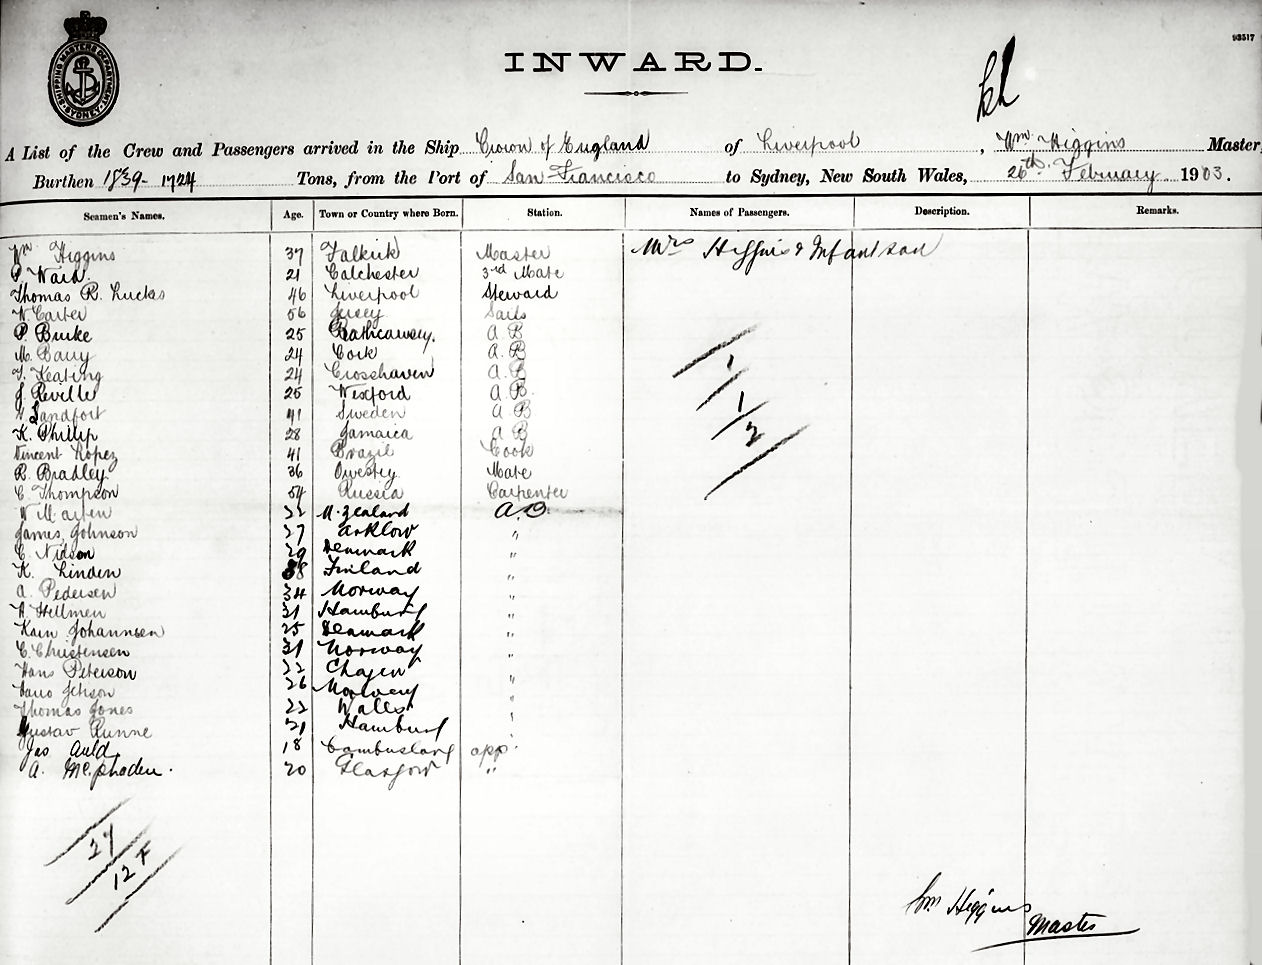 93517
SHIPPING MASTERS DEPARTMENT SYDNEY
INWARD.
A List of the Crew and Passengers arrived in the Ship Crown of England of Liverpool, Wm. Higgins Master,
Burthen 1839 - 1724 Tons, from the Port of San Francisco to Sydney, New South Wales, 26th. February 1903.
Seamen's Names. Age. Town or Country where Born. Station. Names of Passengers. Description. Remarks.
Wm Higgins 37 Falkirk Master Mrs Higgins & Infant son
P. Ward 21 Colchester 3rd Mate
Thomas R. Lucks 46 Liverpool Steward
W. Carter 56 Jersey Sails
P. Burke 25 A.B
M. Barry 24 Cork A.B
T. Keating 24 Crosshaven A.B
J. Reville 25 Wexford A.B.
Landfort 41 Sweden A.B
K. Philip 28 Jamaica A.B
Vincent Lopez 41 Brazil Cook
R. Bradley 36 Owestry Mate
C. Thompson 54 Russia Carpenter
W. Marten 32 N. Zealand A.B.
James Johnson 27 Arklow "
C. Nielson 29 Denmark "
K. Linden 38 Finland "
A. Pedersen 34 Norway "
Hellmen 31 Hamburg "
Karn Johannsen 25 Denmark "
C. Christensen 31 Norway "
Hans Peterson 22 "
26 Norway "
Thomas Jones 22 Walls "
Gustav Runne 21 Hamburg "
Jas Auld 18 Cambuslang app
A. McPhaden. 20 Glasgow "
1
1
2
27
12 F
Wm Higgins
Master